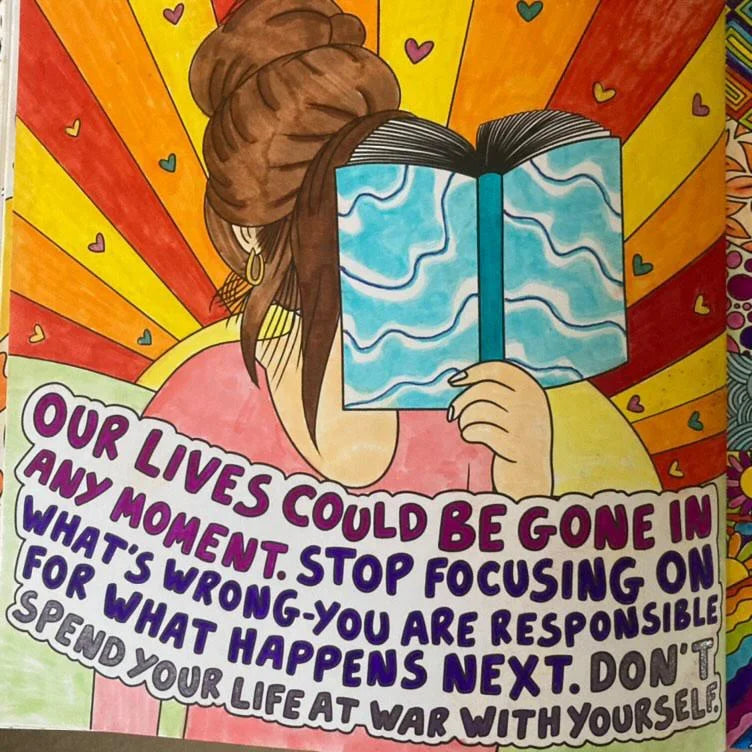 OUR LIVES COULD BE GONE IN
ANY MOMENT. STOP FOCUSING ON
WHAT'S WRONG-YOU ARE RESPONSIBLE
FOR WHAT HAPPENS NEXT. DON'T
SPEND YOUR LIFE AT WAR WITH YOURSELF.